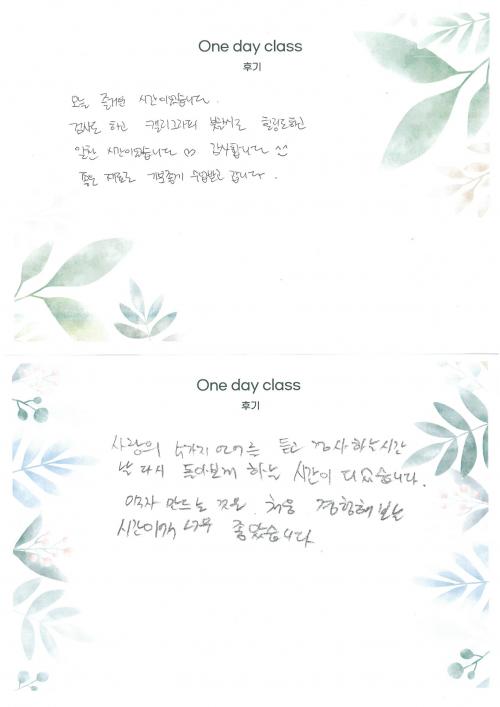 One day class
후기
오늘 즐거운 시간이었습니다.
감사도 하고 캘리그라피 붓펜시로 힐링도하고
알찬 시간이었습니다 ♡ 감사합니다 ^^
좋은 재료로 기분좋게 수업받고 갑니다.
One day class
후기
사랑의 5가지 언어를 듣고 감사하는시간
날 다시 돌아보게 하는 시간이 되었습니다.
액자 만드는 것은 처음 경험해 보는
시간이라 너무 좋았습니다.